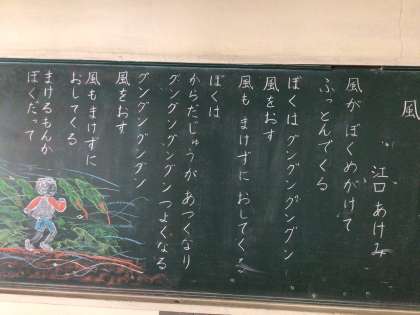 風
江口 あけみ
風が ぼくめがけて
ふっとんでくる
ぼくは グングングングン
風をおす
風も まけずに おしてくる
ぼくは
からだじゅうが あつくなり
グングングングン つよくなる
グングングングン
風をおす
風もまけずに
おしてくる
まけるもんか
ぼくだって